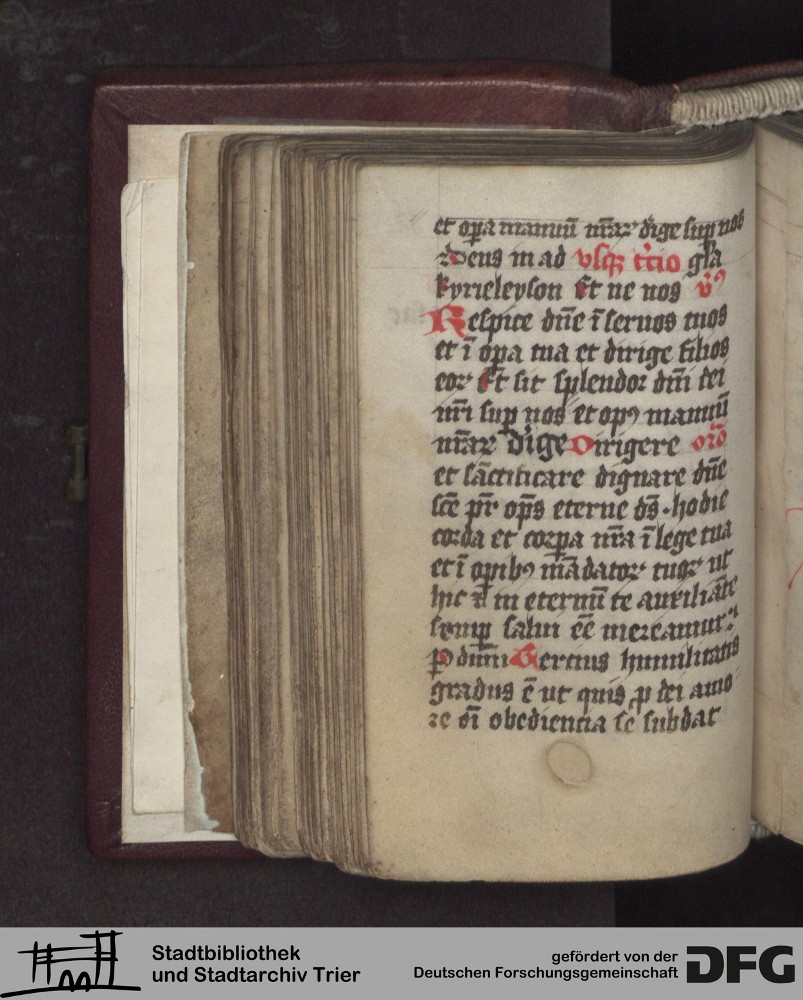 et opa manuū nr̄ar dige sup nos
Deus in ad vsqꝫ t'cio gl'a
kyrieleyson Et ne nos v̓
Respice dn̄e ī seruos tuos
et ī opa tua et dirige filios
eoꝝ Et sit splendor dn̄i dei
nr̄i sup nos et opꝰ manuū
nr̄aꝝ dige Dirigere or̄o
et sāctificare dignare dn̄e
sc̄e pr̄ op̄s eterne ds̄ hodie
corda et corpa nr̄a ī lege tua
et ī opibꝰ mādatoꝝ tuoꝝ ut
hic ⁊ in eternū te auxiliāte
semp salui eē mereamur
P dūm Tercius humilitatis
gradus ē ut quis ꝓ dei amo
re oī obediencia se subdat
Stadtbibliothek
und Stadtarchiv Trier
gefördert von der
Deutschen Forschungsgemeinschaft
DFG